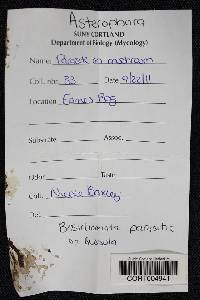 Asterophora
SUNY CORTLAND
Department of Biology (Mycology)
Name: Parasite on mushroom
Coll. no: 33 Date: 9/22/11
Location
Substrate Assoc.
Odor Taste
Coll.
Det:
Basidiomata parasitic
on Russula
CORT004941